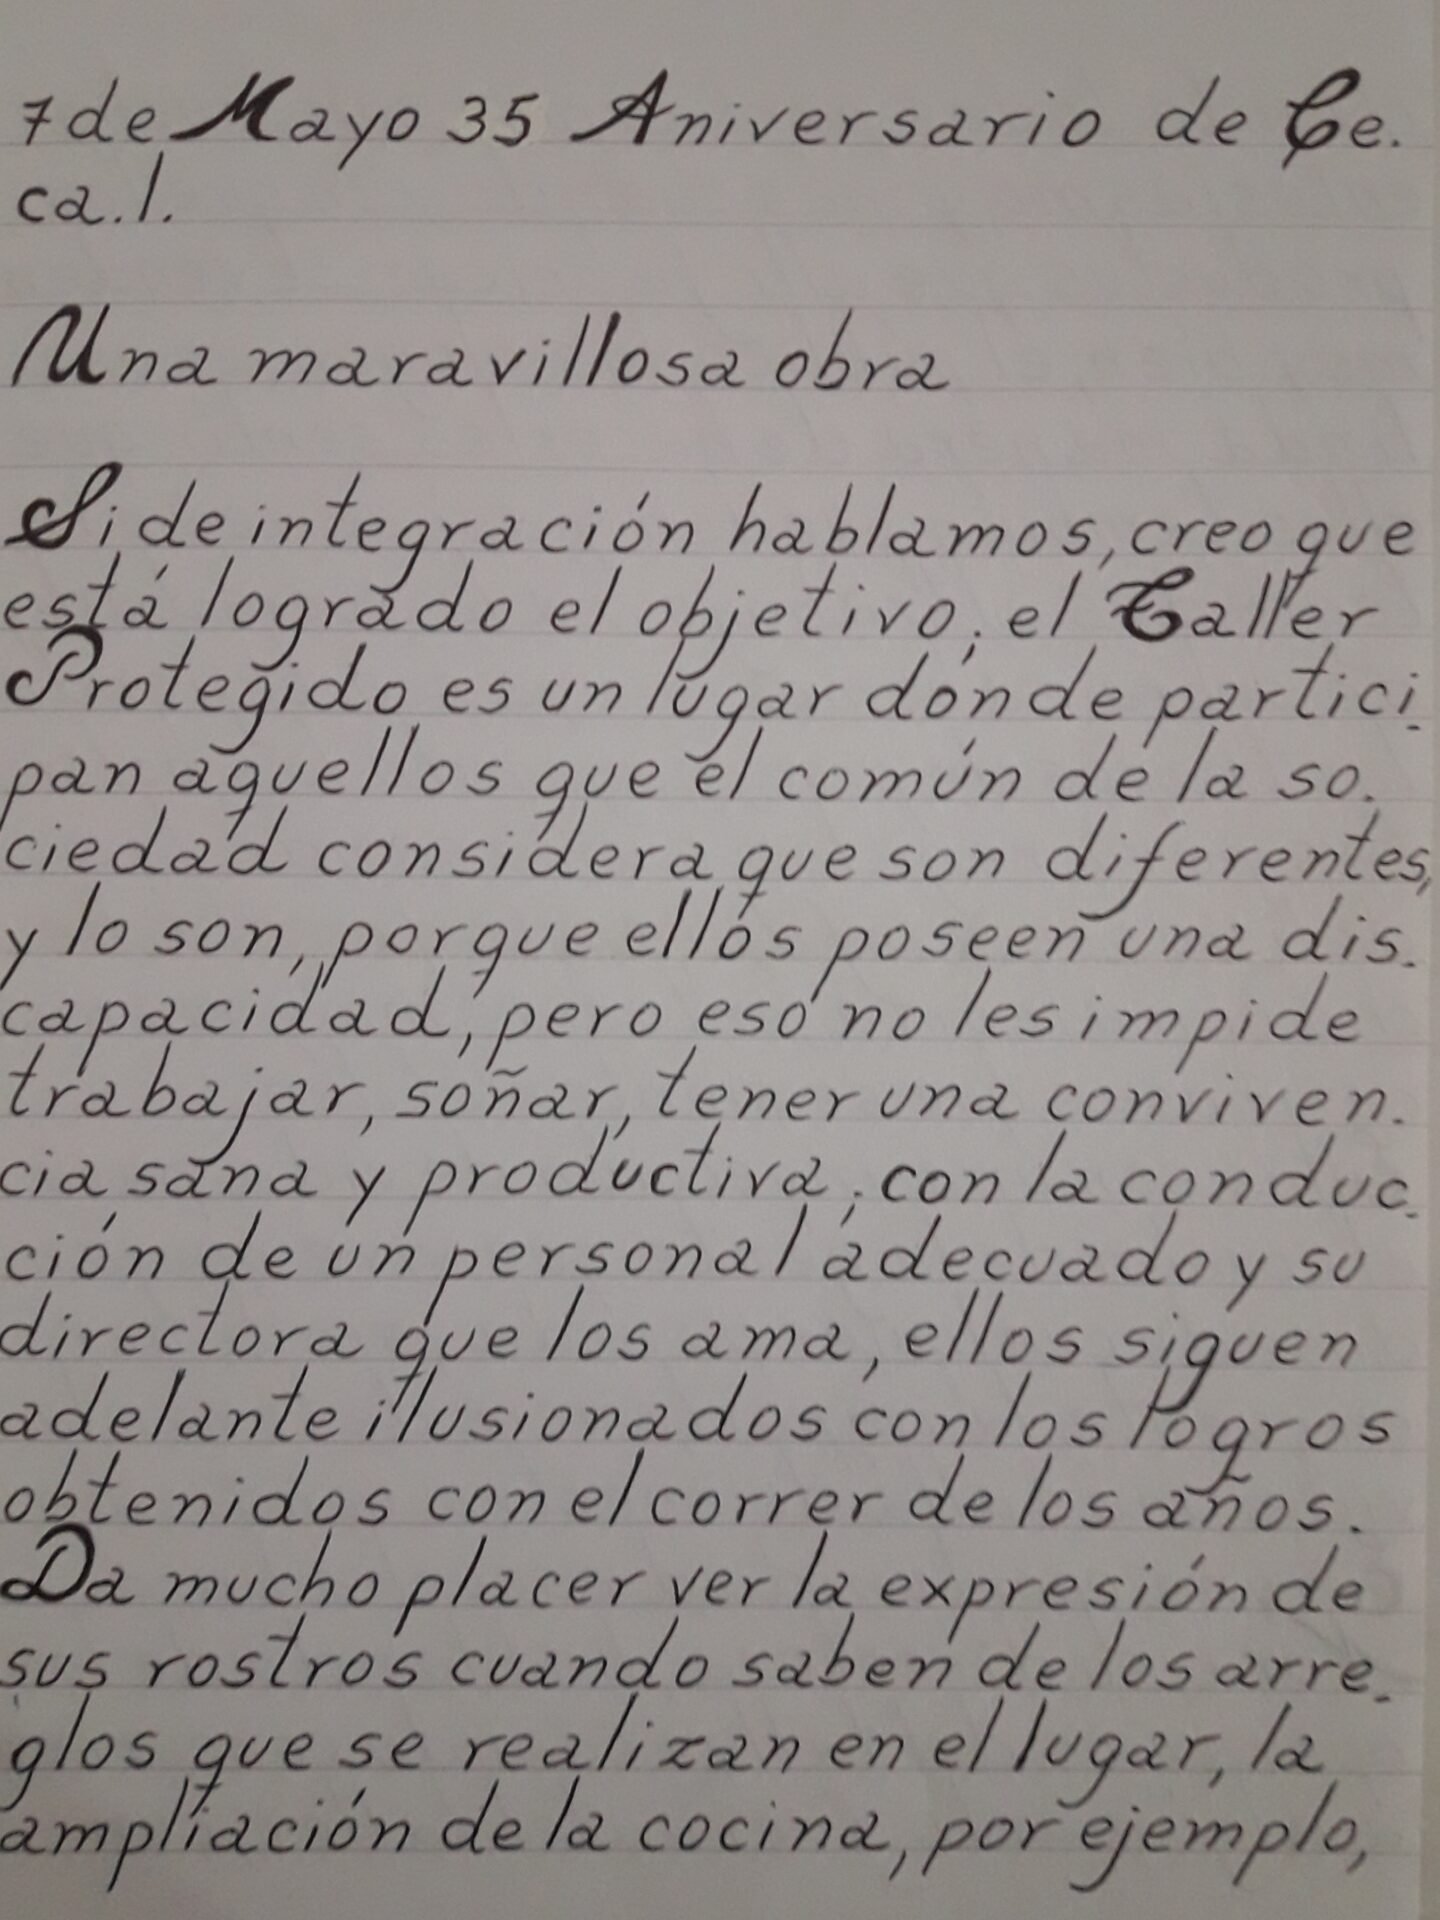 7 de Mayo 35 Aniversario de Ce.
ca.l.
Una maravillosa obra
Si de integración hablamos, creo que
está logrado el objetivo; el Taller
Protegido es un lugar donde partici.
pan aquellos que el común de la so.
ciedad considera que son diferentes,
y lo son, porque ellos poseen una dis.
capacidad, pero eso no les impide
trabajar, soñar, tener una conviven.
cia sana y productiva; con la conduc.
ción de un personal adecuado y su
directora que los ama, ellos siguen
adelante ilusionados con los logros
obtenidos con el correr de los años.
Da mucho placer ver la expresión de
sus rostros cuando saben de los arre.
glos que se realizan en el lugar, la
ampliación de la cocina, por ejemplo,